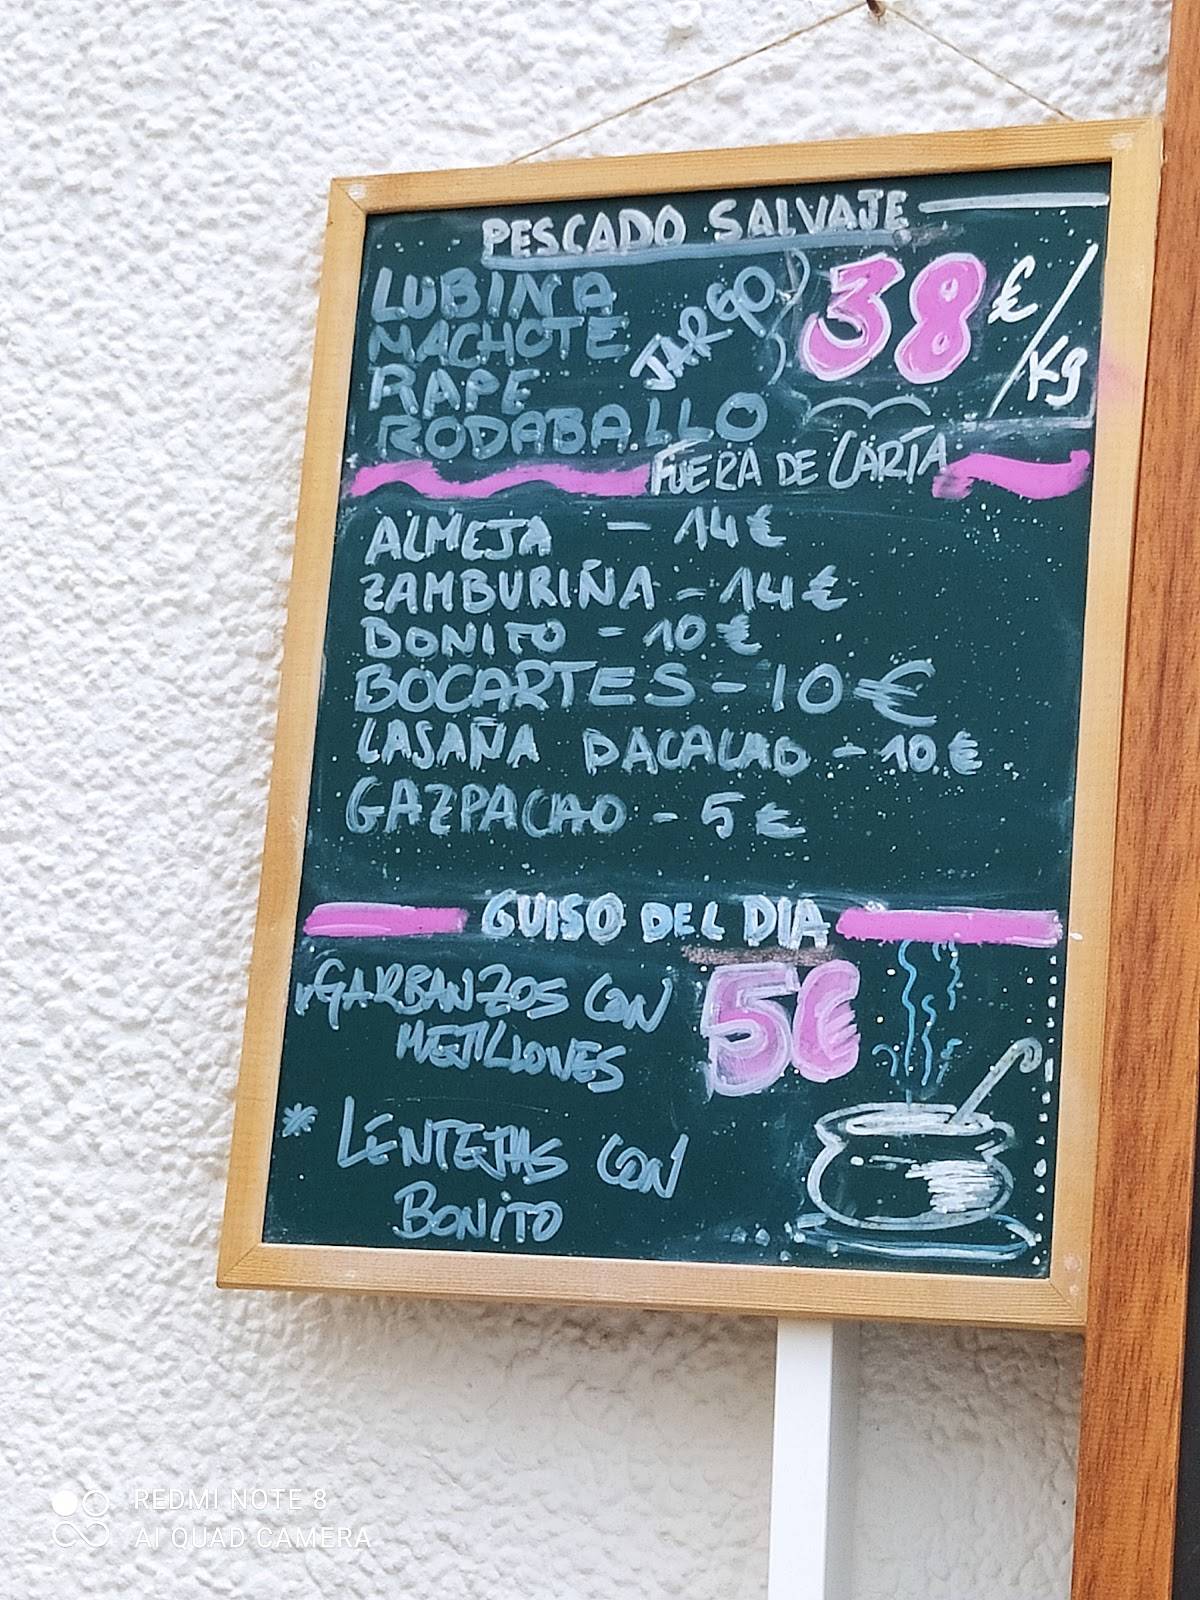 PESCADO SALVAJE
LUBINA
MACHOTE
JARGO
RAPE
RODABALLO
38 €/Kg
FUERA DE CARTA
ALMEJA - 14€
ZAMBURIÑA - 14€
BONITO - 10€
BOCARTES - 10€
LASAÑA BACALAO - 10€
GAZPACHO - 5€
GUISO DEL DIA
GARBANZOS CON
MEJILLONES
5€
* LENTEJAS CON
BONITO
REDMI NOTE 8
AI QUAD CAMERA